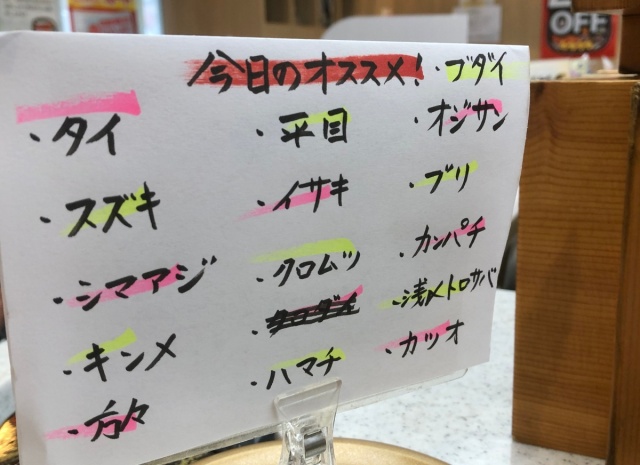 今日のオススメ!
・タイ
・スズキ
・シマアジ
・キンメ
・方々
・平目
・イサキ
・クロムツ
・ハマチ
・ブダイ
・オジサン
・ブリ
・カンパチ
・浅〆トロサバ
・カツオ
OFF